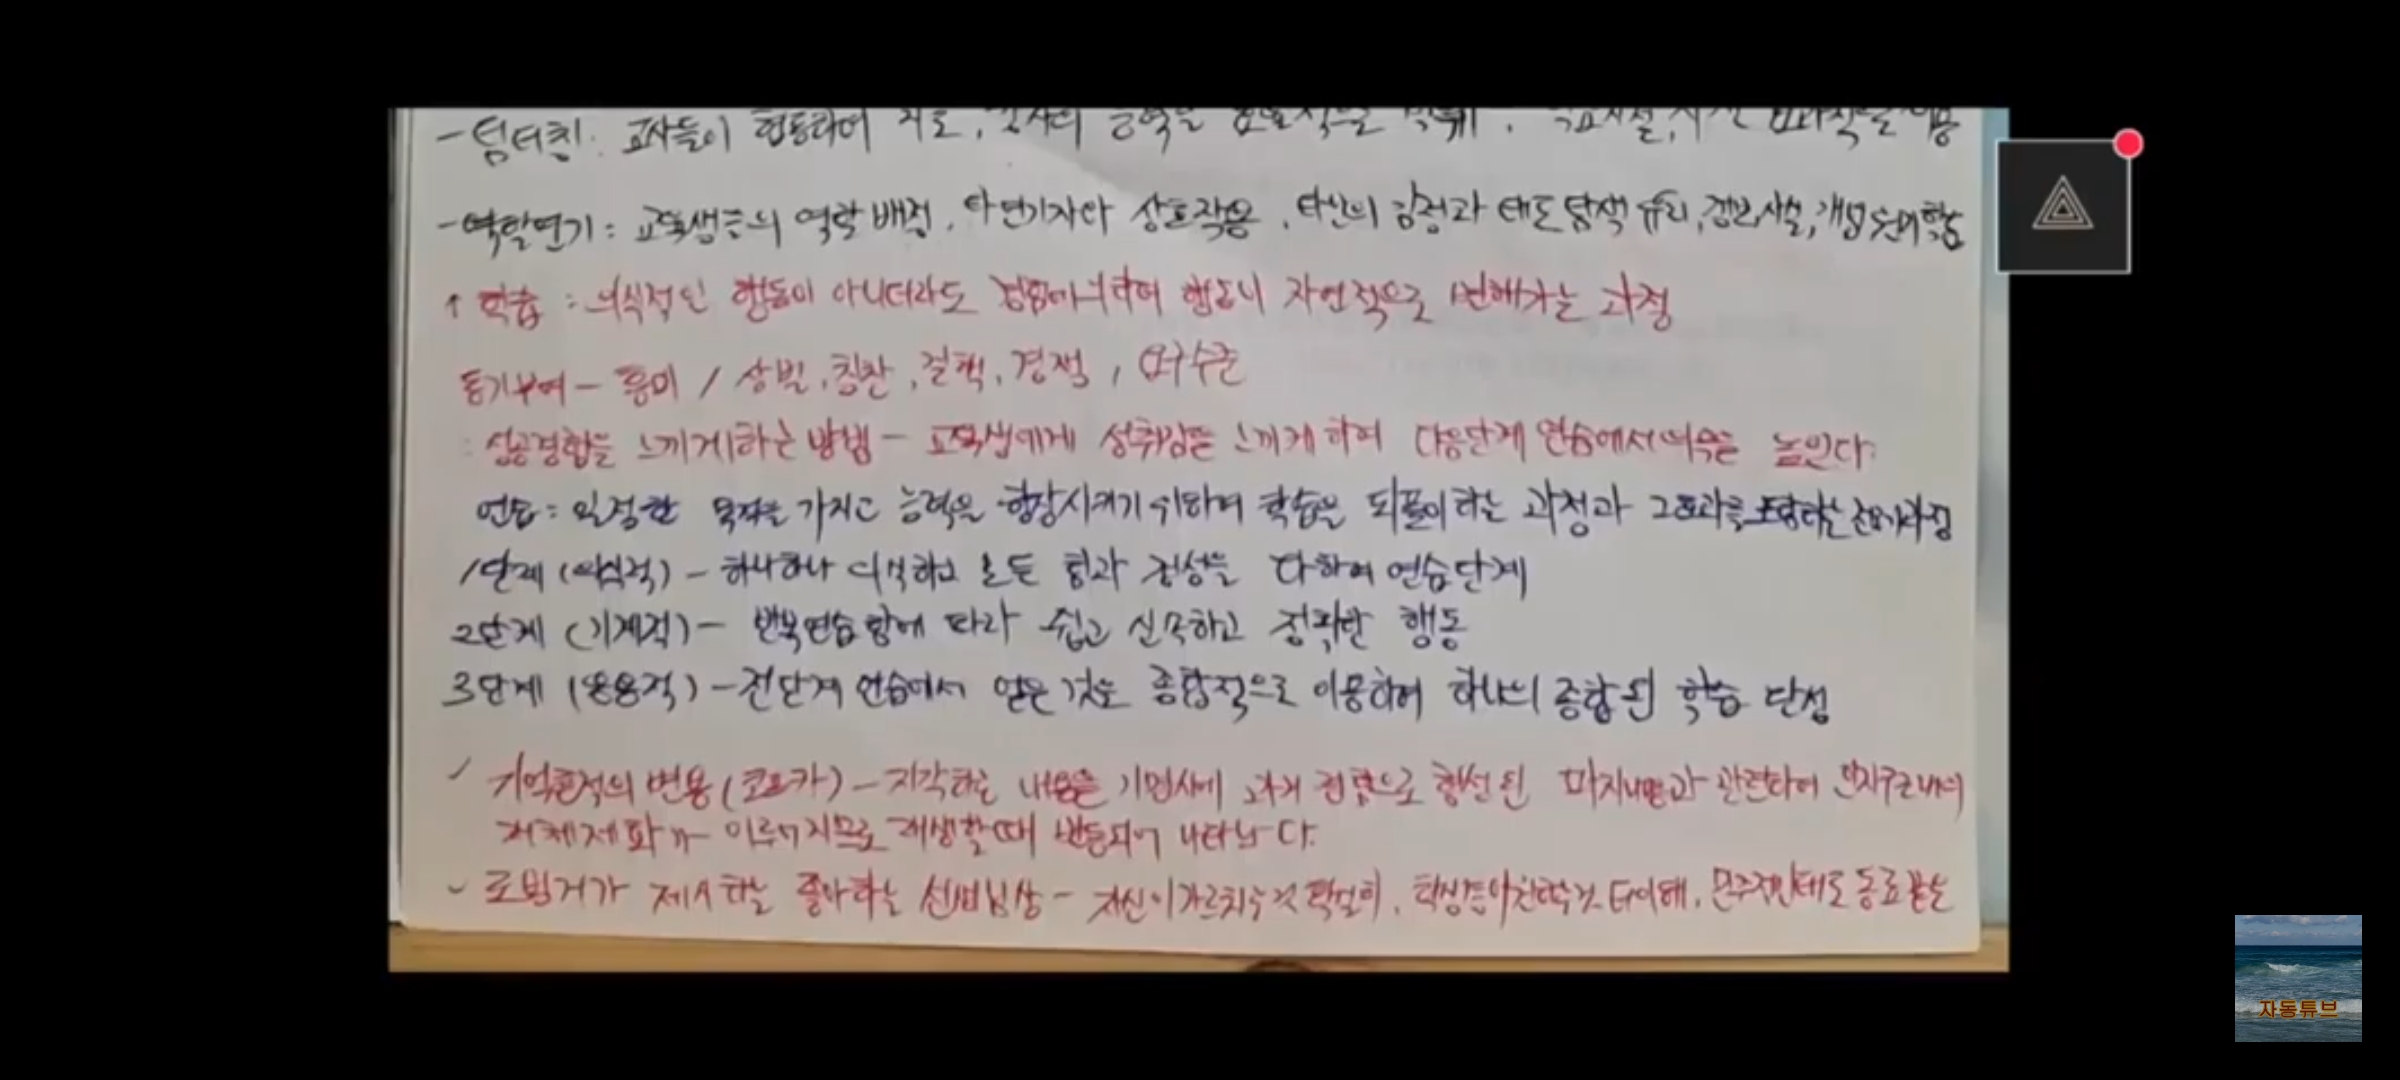 -팀티칭: 교사들이 협동하여 지도,
-역할연기: 교육생들의 역할 배정, 타연기자와 상호작용, 타인의 감정과 태도 탐색
학습 : 의식적인 행동이 아니더라도 경험에 의하여 행동이 자연적으로 변해가는 과정
동기부여 - 흥미 / 상벌, 칭찬, 질책, 경쟁, 요구수준
: 성공경험을 느끼게하는 방법 - 교육생에게 성취감을 느끼게 하여 다음단계 연습에서 의욕을 높인다.
연습: 일정한 목적을 가지고 능력을 향상시키기 위하여 학습을 되풀이하는 과정과 그효과를 포함하는
1단계 (의식적) - 하나하나 의식하고 모든 힘과 정성을 다하여 연습단계
2단계 (기계적) - 반복연습함에 따라 쉽고 신속하고 정확한 행동
3단계 (응용적) - 전단계 연습에서 얻은 것을 종합적으로 이용하여 하나의 종합된 학습 단성
기억흔적의 변용 (코프카) - 지각하는 내용은 과거 경험으로 형성된 관련하여
재체제화가 이루어지므로 재생할때 변동되어 나타난다.
제시하는 좋아하는 선생님상 - 자신이 가르치는것 확실히, 민주적인태도
자동튜브